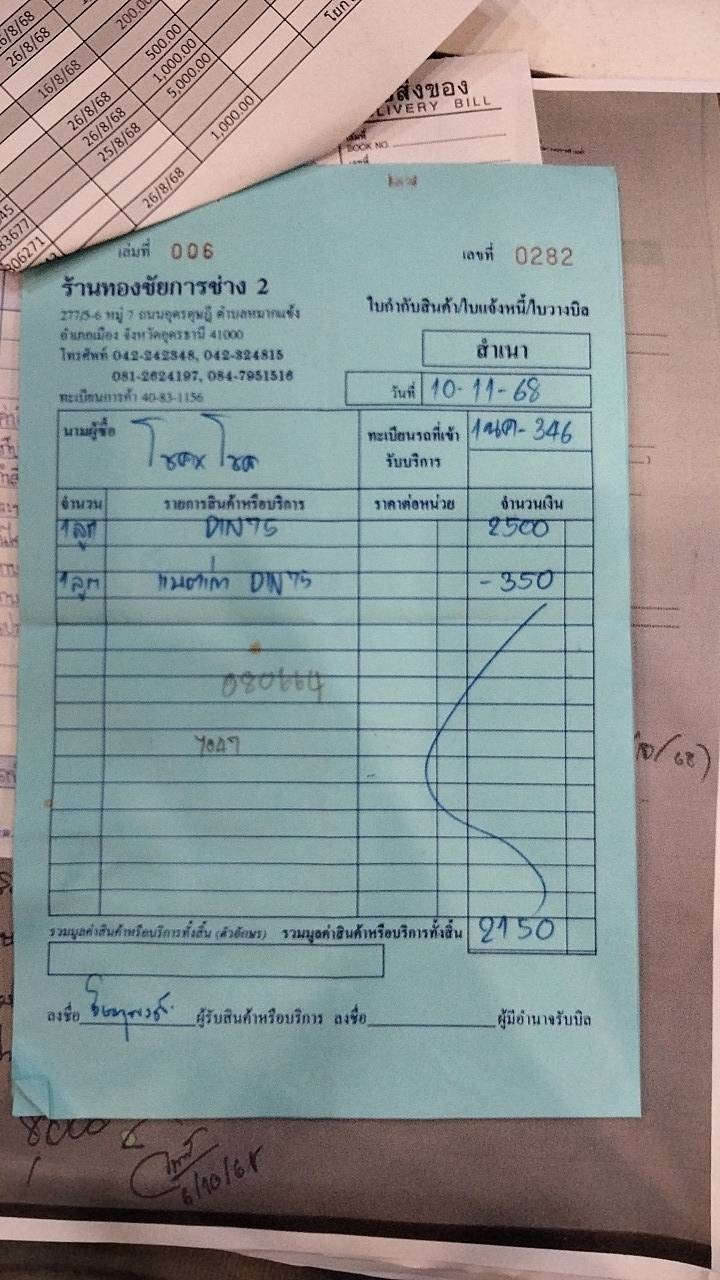 26/8/68
26/8/68
200.00
16/8/68
500.00
26/8/68
1,000.00
26/8/68
5,000.00
25/8/68
1,000.00
26/8/68
83677
806271
ส่งของ
DELIVERY BILL
เล่มที่
BOOK NO.
เลขที่
เล่มที่ 006
เลขที่ 0282
ร้านทองชัยการช่าง 2
277/5-6 หมู่ 7 ถนนอุดรดุษฎี ตำบลหมากแข้ง
อำเภอเมือง จังหวัดอุดรธานี 41000
โทรศัพท์ 042-242348, 042-324815
081-2624197, 084-7951516
ทะเบียนการค้า 40-83-1156
ใบกำกับสินค้า/ใบแจ้งหนี้/ใบวางบิล
สำเนา
วันที่ 10-11-68
นามผู้ซื้อ โชค x โชค
ทะเบียนรถที่เข้ารับบริการ 1ฒค-346
จำนวน รายการสินค้าหรือบริการ ราคาต่อหน่วย จำนวนเงิน
1 ลูก DIN 75 2500
1 ลูก แบตเก่า DIN 75 -350
080664
7047
รวมมูลค่าสินค้าหรือบริการทั้งสิ้น (ตัวอักษร) รวมมูลค่าสินค้าหรือบริการทั้งสิ้น 2150
ลงชื่อ ผู้รับสินค้าหรือบริการ ลงชื่อ ผู้มีอำนาจรับบิล
8000
6/10/68